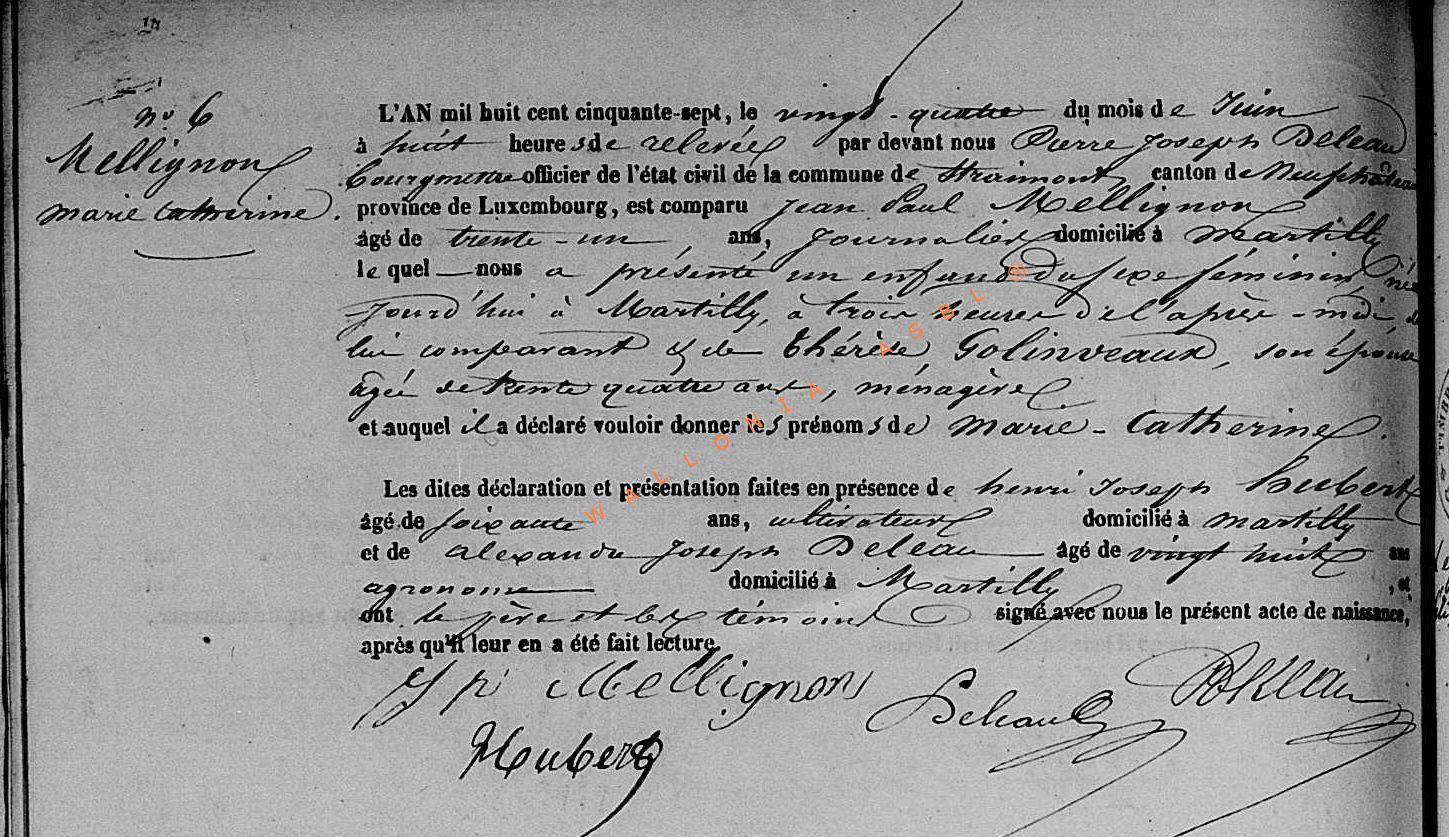 nº 6
Mellignon
marie catherine.
L'AN mil huit cent cinquante-sept, le vingt-quatre du mois de Juin
à huit heures de relevée par devant nous Pierre Joseph Deleau
bourgmestre officier de l'état civil de la commune de Straimont canton de Neufchateau
province de Luxembourg, est comparu Jean Paul Mellignon
âgé de trente-un, ans, Journalier domicilié à Martilly
le quel nous a présenté un enfant du sexe féminin, née
jourd'hui à Martilly, à trois heures de l'après-midi, de
lui comparant & de Thérèse Golinveaux, son épouse
âgée de trente quatre ans, ménagère
et auquel il a déclaré vouloir donner les prénoms de marie-Catherine.
Les dites déclaration et présentation faites en présence de henri Joseph hubert
âgé de soixante ans, cultivateur domicilié à Martilly
et de alexandre Joseph Deleau âgé de vingt huit ans
agronome domicilié à Martilly, et
ont le père et les témoins signé avec nous le présent acte de naissance,
après qu'il leur en a été fait lecture.
J p Mellignon Deleau PJDeleau
Hubert
WALLONIA ASBL ©